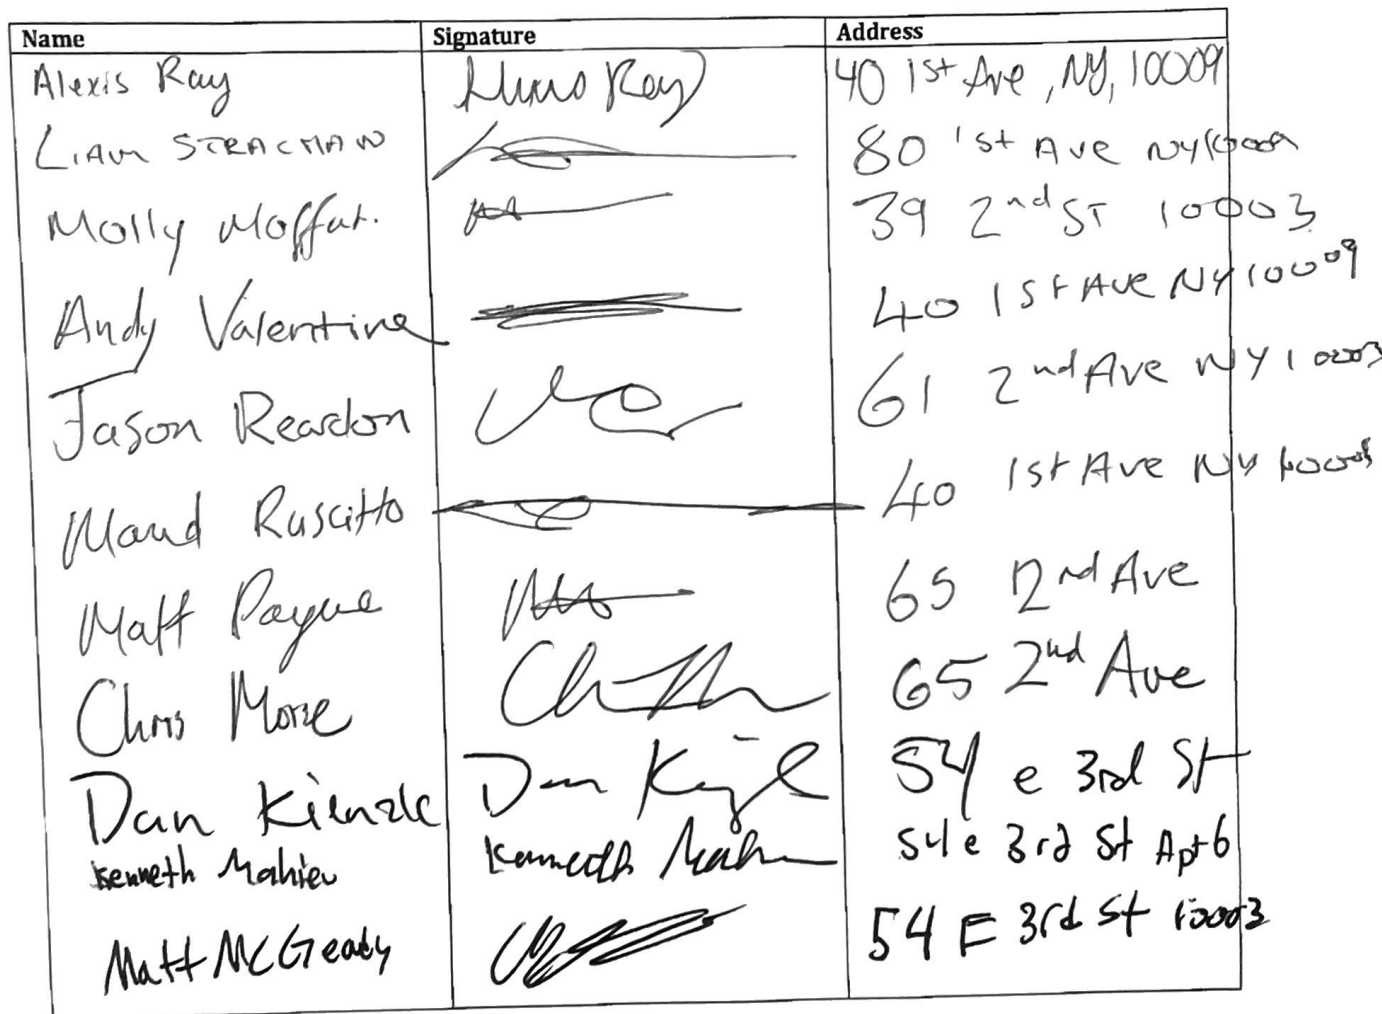 Name Signature Address
Alexis Ray Ray 40 1st Ave, NY, 10009
Liam STRACHAN 80 1st Ave NY 10009
Molly Moffat. 39 2nd ST 10003
Andy Valentine 40 1st Ave NY 10009
Jason Reardon 61 2nd Ave NY 10003
Maud Ruscitto 40 1st Ave NY
Matt Payne 65 2nd Ave
Chris Morse 65 2nd Ave
Dan Kienzle Dan 54 e 3rd St
Kenneth Mahieu Kenneth 54 e 3rd St Apt 6
Matt McGeady 54 E 3rd St 10003